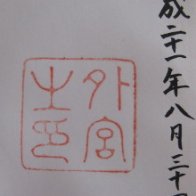 成二十一年八月三十
外宮
之印